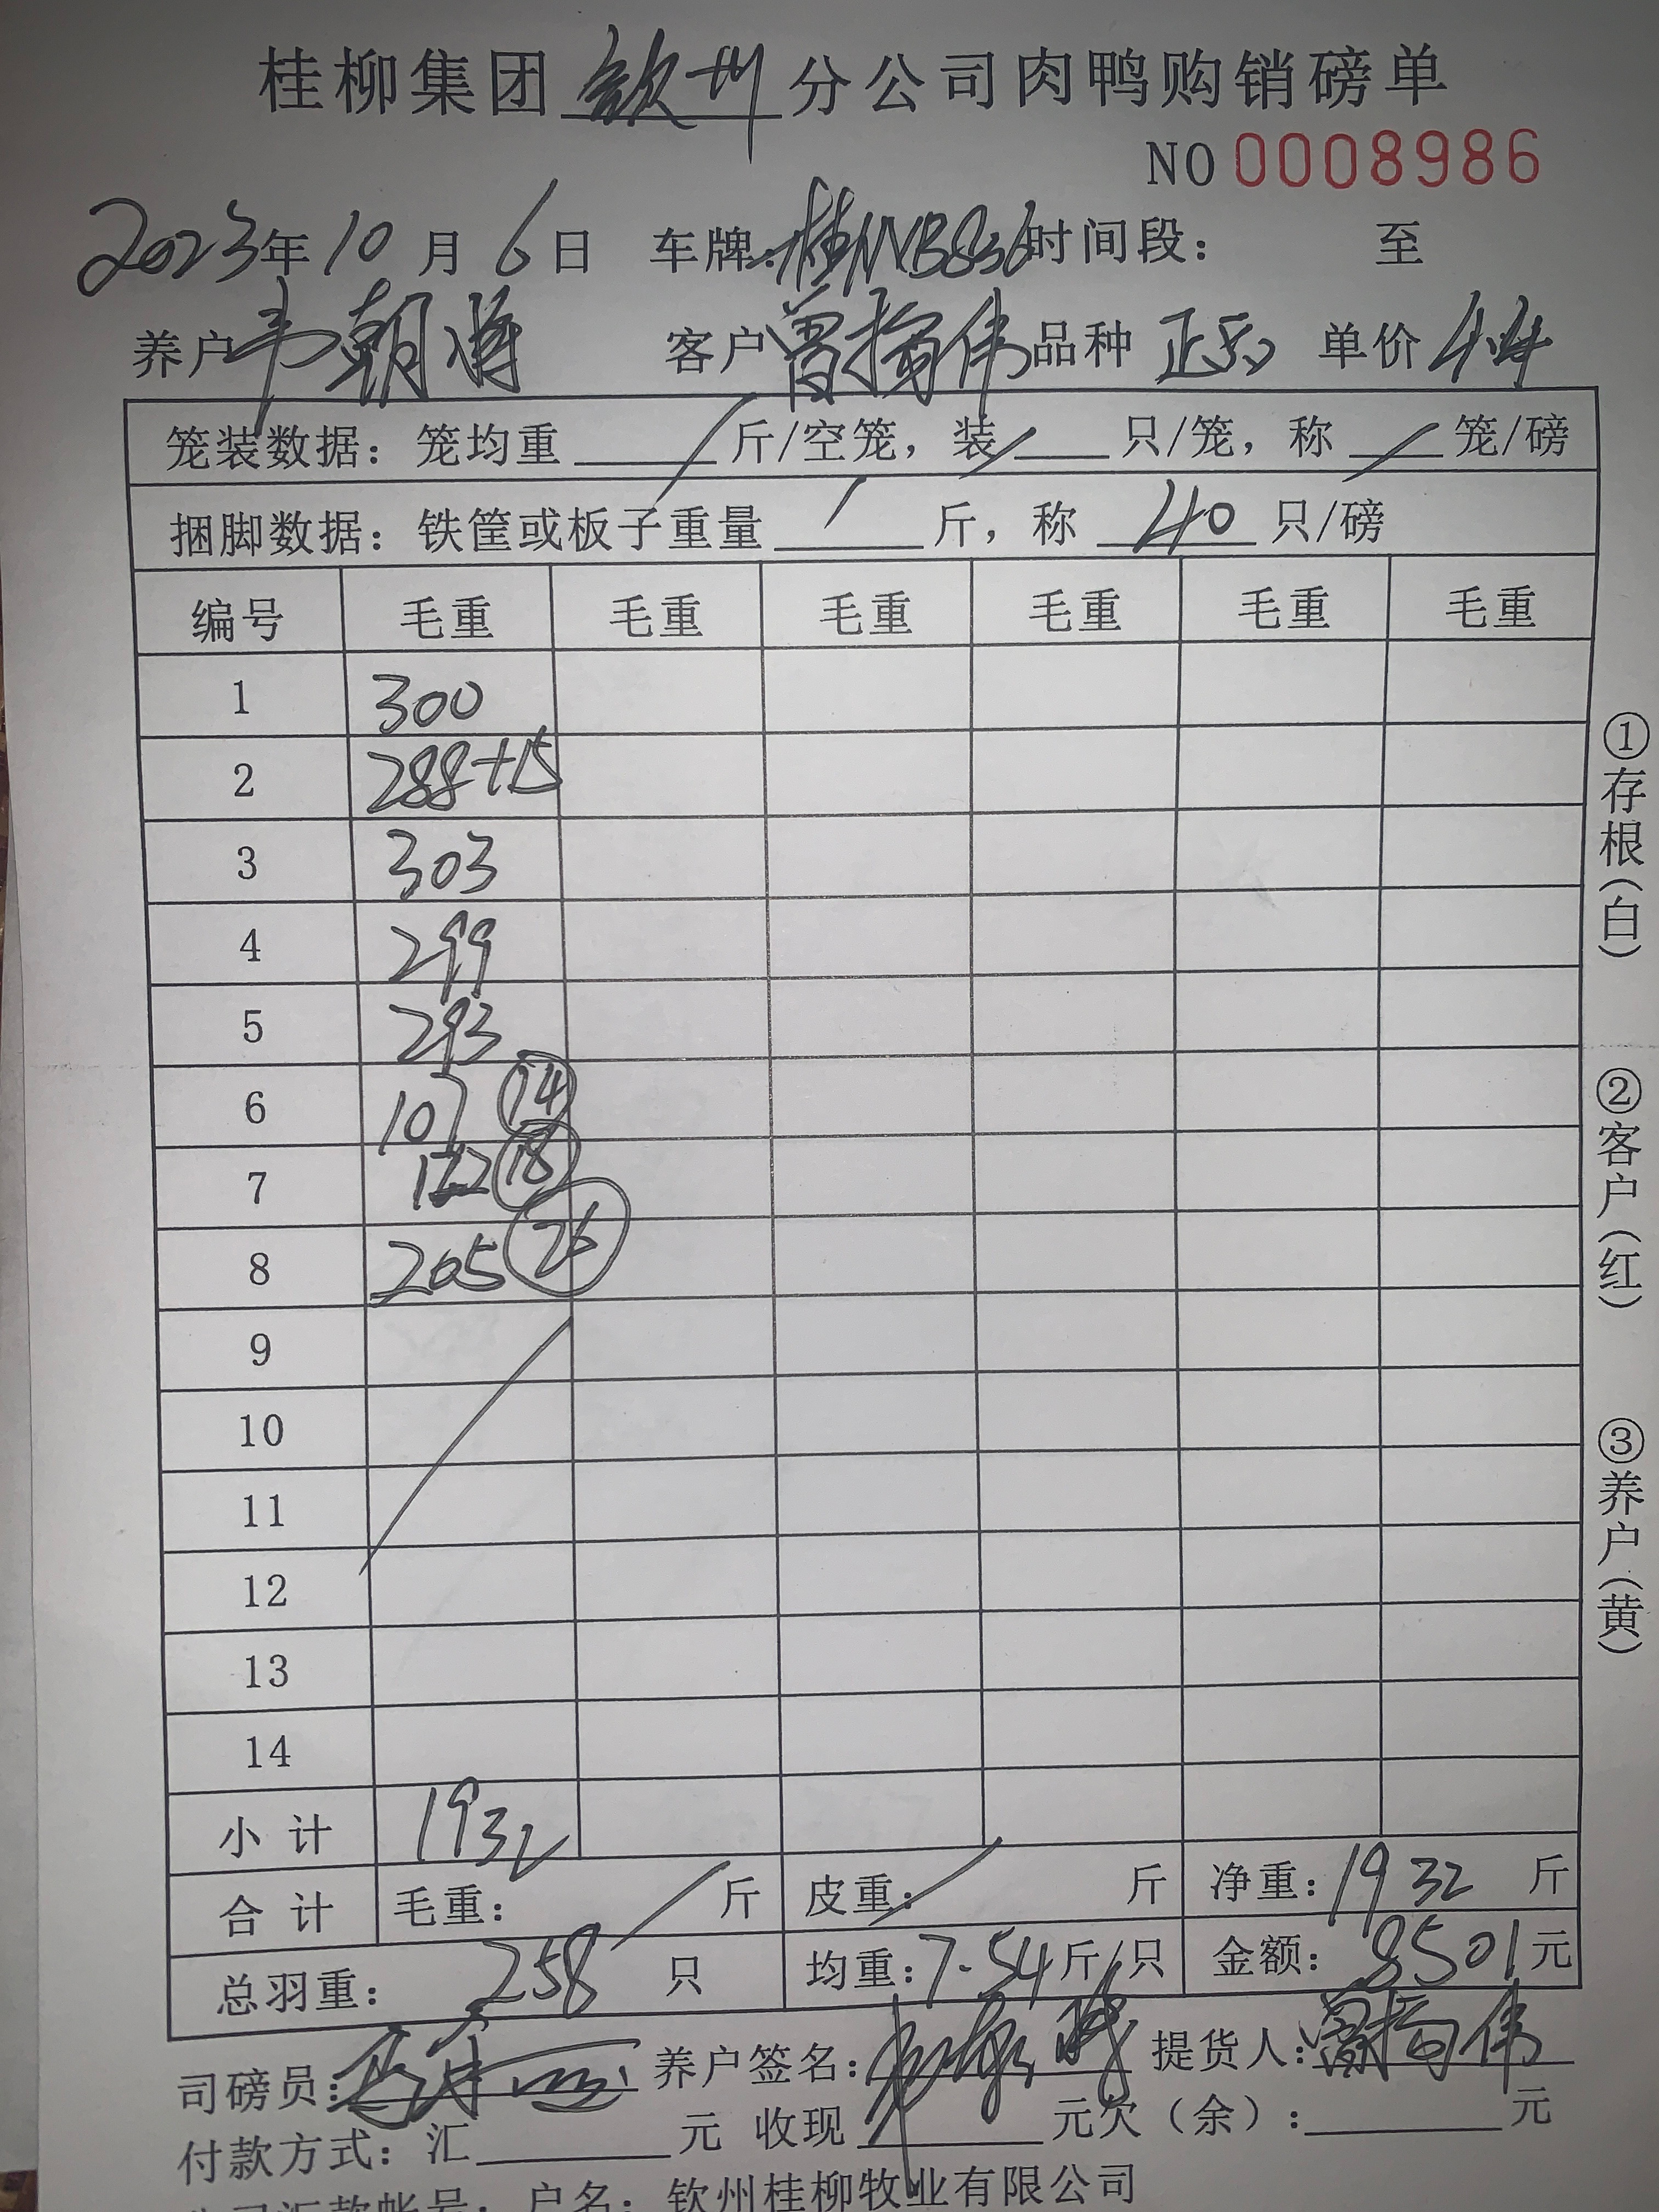 桂柳集团 钦州 分公司肉鸭购销磅单
NO 0008986
2023年 10 月 6 日 车牌:桂NB836 时间段: 至
养户 韦朝将 客户 曾 伟 品种 正品 单价 4.4
笼装数据:笼均重 / 斤/空笼,装 / 只/笼,称 / 笼/磅
捆脚数据:铁筐或板子重量 / 斤,称 40 只/磅
编号 毛重 毛重 毛重 毛重 毛重 毛重
1 300
2 288+15
3 303
4 299
5 293
6 107 14
7 122 18
8 205 26
9
10
11
12
13
14
小 计 1932
合 计 毛重: / 斤 皮重: / 斤 净重:1932 斤
总羽重: 258 只 均重:7.54斤/只 金额: 8501元
司磅员: 养户签名: 提货人:曾 伟
付款方式:汇 元 收现 元欠(余): 元
户名:钦州桂柳牧业有限公司
①存根(白)
②客户(红)
③养户(黄)